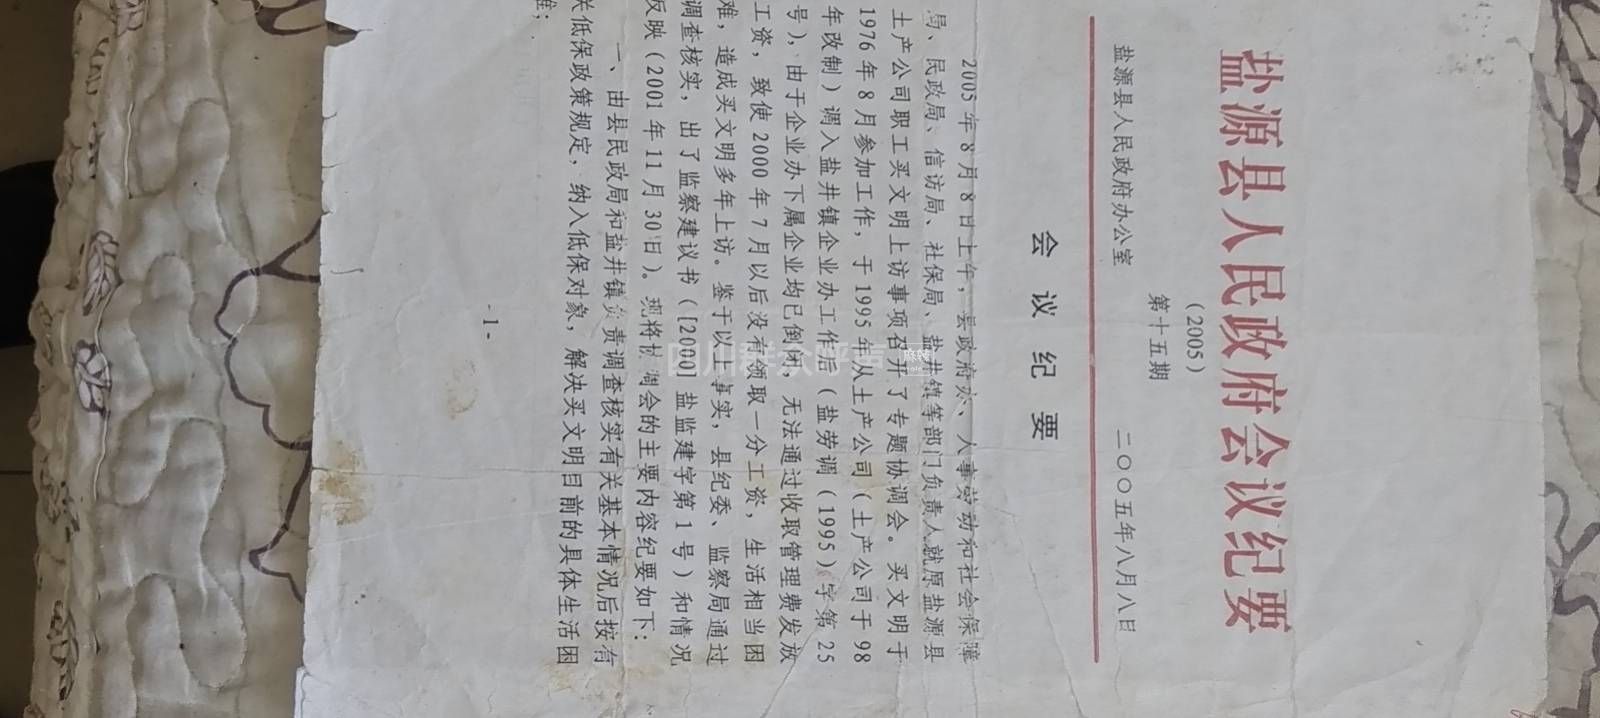 盐源县人民政府会议纪要
(2005)
第十五期
盐源县人民政府办公室
二〇〇五年八月八日
会议纪要
2005年8月8日上午,县政府办、人事劳动和社会保障
局、民政局、信访局、社保局、盐井镇等部门负责人就原盐源县
土产公司职工买文明上访事项召开了专题协调会。买文明于
1976年8月参加工作,于1995年从土产公司(土产公司于98
年改制)调入盐井镇企业办工作后(盐劳调(1995)字第25
号),由于企业办下属企业均已倒闭,无法通过收取管理费发放
工资,致使2000年7月以后没有领取一分工资,生活相当困
难,造成买文明多年上访。鉴于以上事实,县纪委、监察局通过
调查核实,出了监察建议书([200 盐监建字第1号)和情况
反映(2001年11月30日)。现将协调会的主要内容纪要如下:
一、由县民政局和盐井镇负责调查核实有关基本情况后按有
关低保政策规定,纳入低保对象,解决买文明目前的具体生活困
难;
-1-
四川群众呼声
麻辣